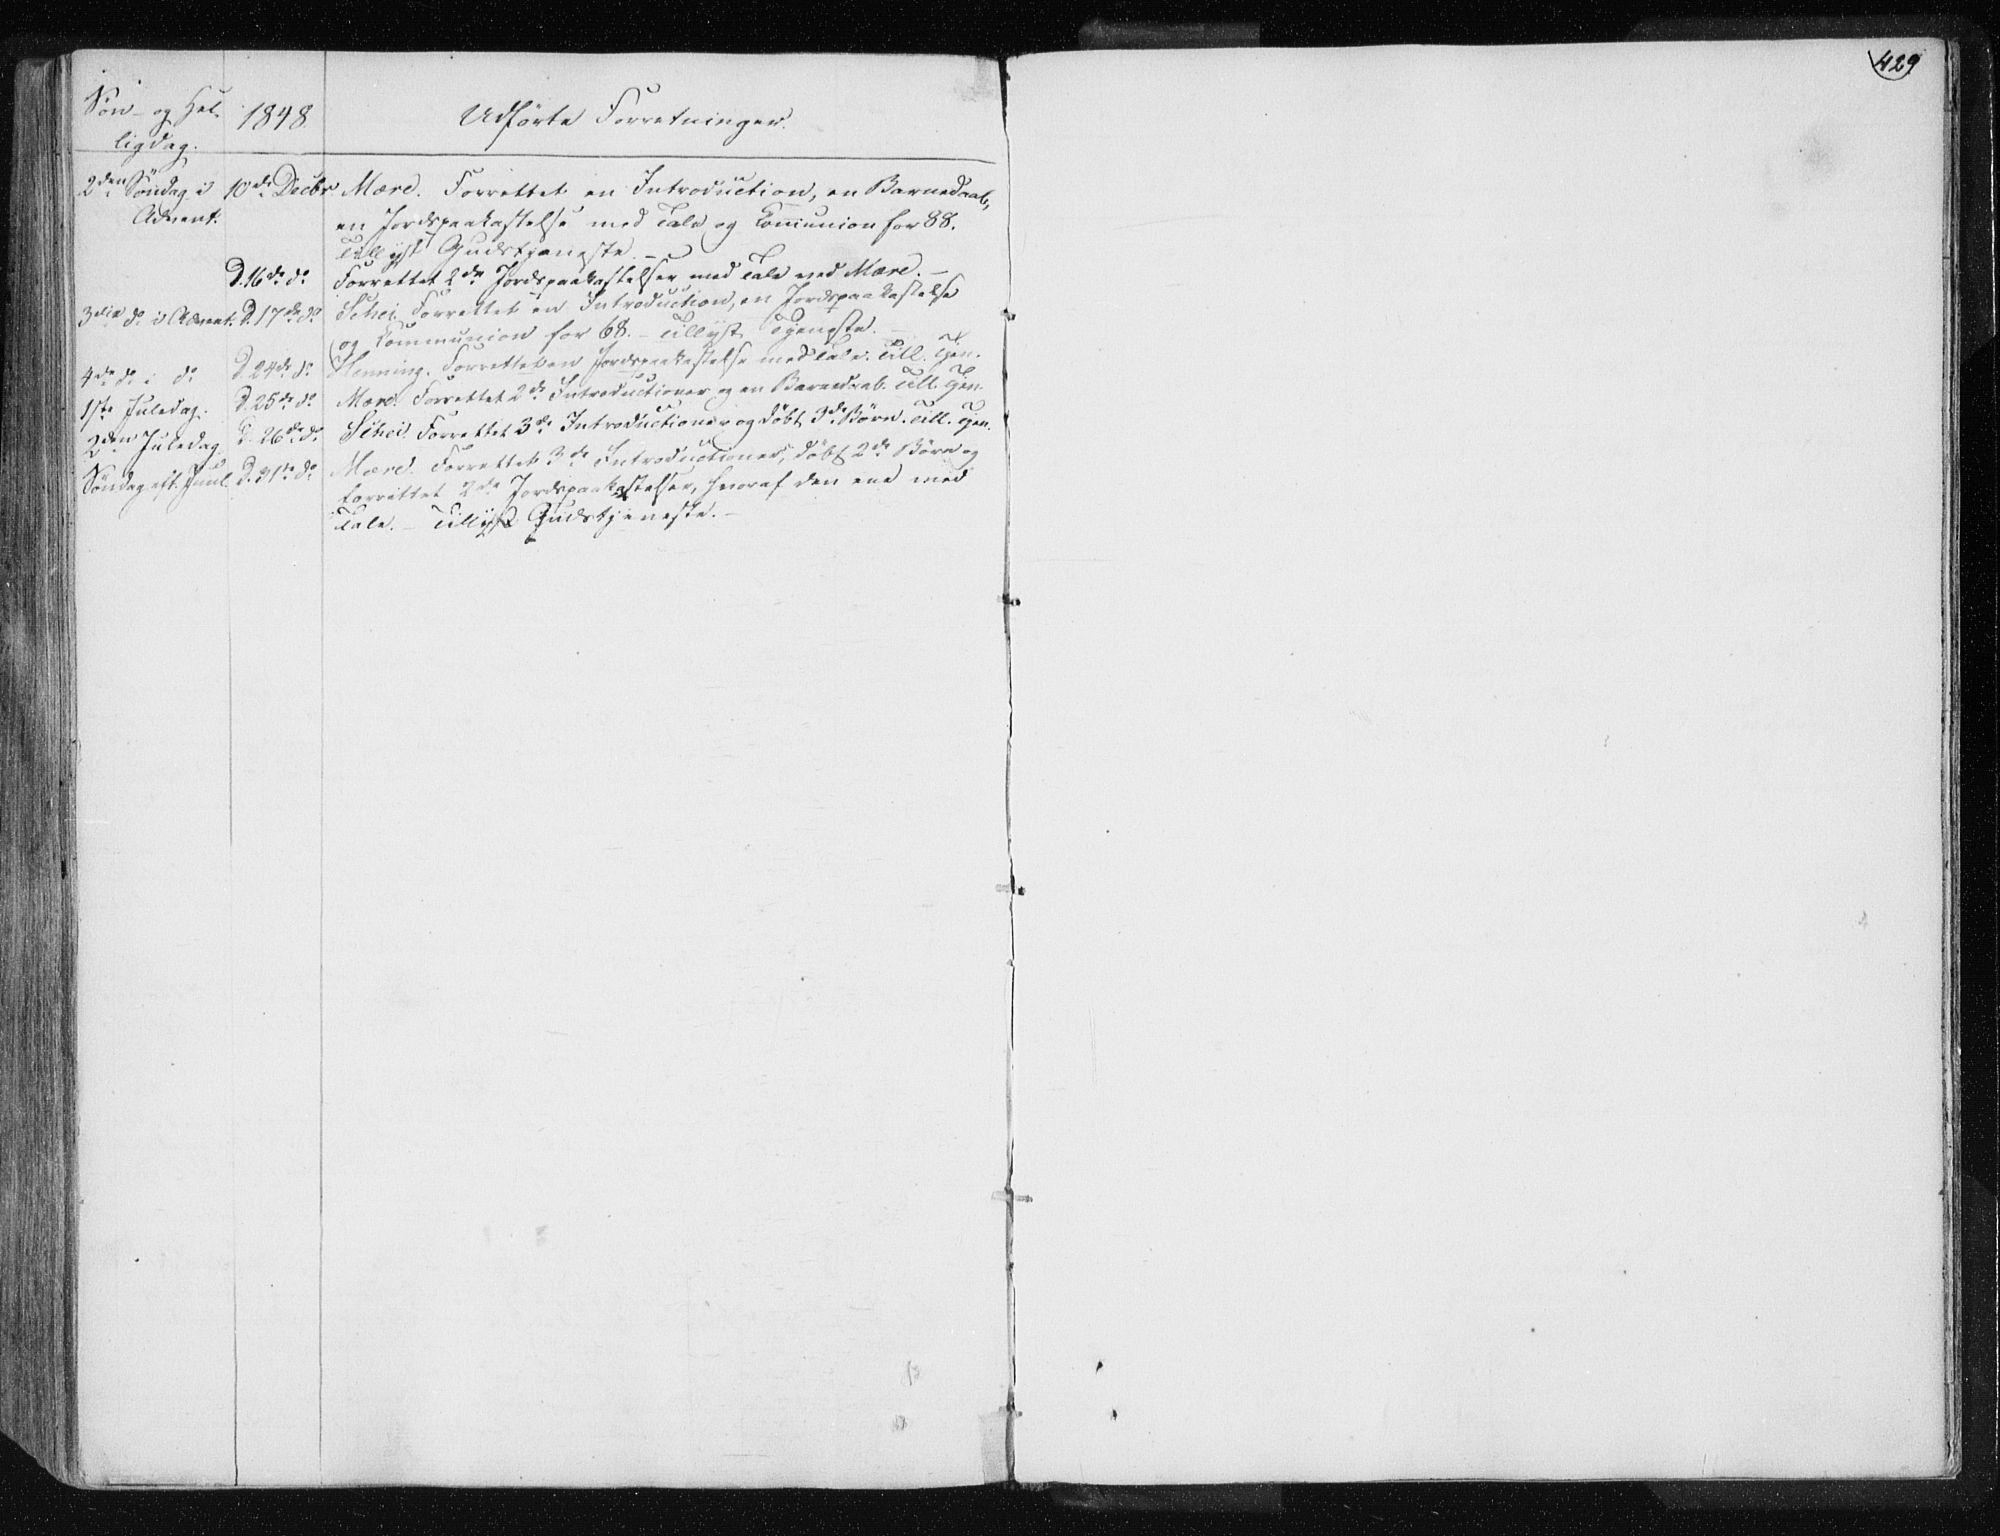 429
Søn- og Hel-
ligdag.
1848
Udførte Forretninger.
2den Søndag i
Advent.
10de Decbr
Mære. Forrettet en Introduction, en Barnedaab,
en Jordspaakastelse med Tale og Communion for 88.
Tillyst Gudstjeneste. -
D. 16de do
Forrettet 2de Jordspaakastelser med Tale ved Mære. -
3die do i Advent.
D. 17de do
Schei. Forrettet en Introduction, en Jordspaakastelse
og Communion for 68. - Tillyst Tjeneste. -
4de do i do
D. 24de do
Henning. Forrettet en Jordspaakastelse med Tale. Till. Tjen.
1ste Juledag.
D. 25de do
Mære. Forrettet 2de Introductioner og en Barnedaab. Till. Tjen.
2den Juledag
D. 26de do
Schei. Forrettet 3de Introductioner og døbt 3de Børn. Till. Tjen.
Søndag eft. Juul
D. 31te do
Mære. Forrettet 3de Introductioner, døbt 2de Børn og
forrettet 2de Jordspaakastelser, hvoraf den ene med
Tale. - Tillyst Gudstjeneste. -